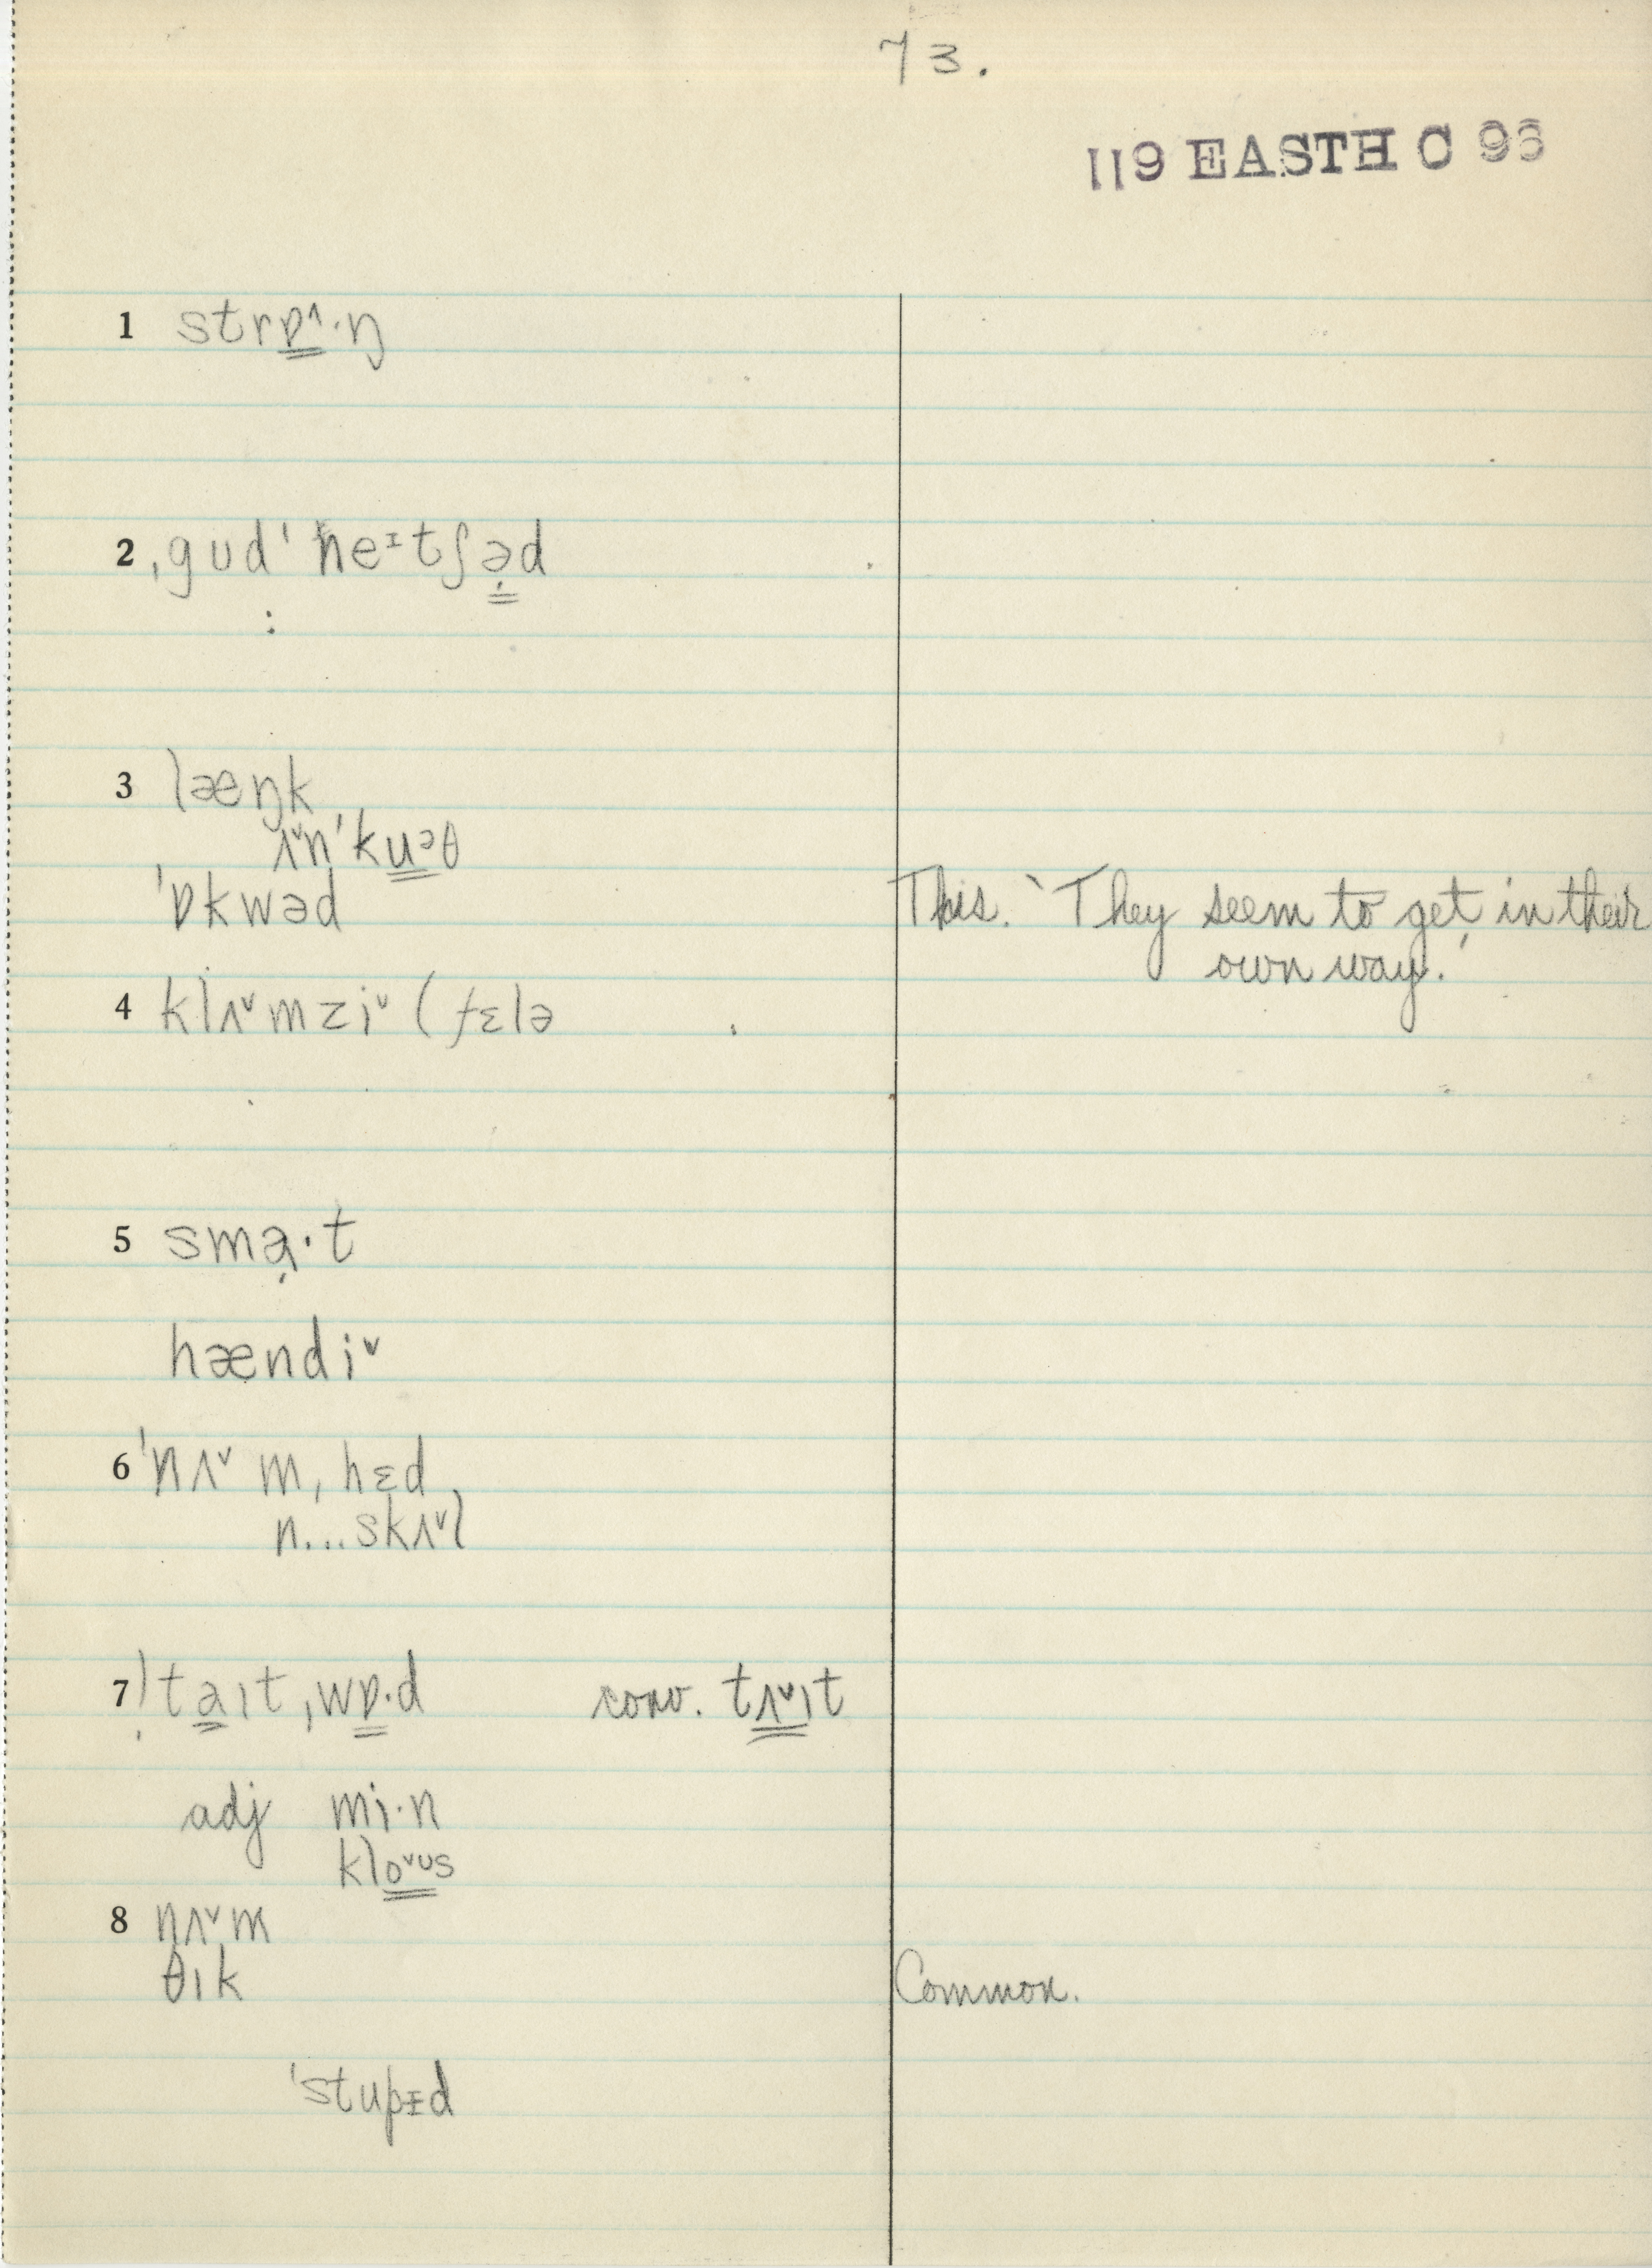 73.
119 EASTH C 96
1 strɒ˄·ŋ
2 ˌgʊd ˈheᶦtʃə̣d
3 læŋk
ʌ˅nˈkuᵊθ
ˈɒkwəd This. `They seem to get in their
own way.'
4 klʌ˅mzi˅ (fɛlə
5 sma̦·t
hændi˅
6 ˈnʌ˅mˌhɛd
n...skʌ˅l
7 ˈtaɪtˌwɒ·d conv. tʌ˅ɪt
adj mi·n
klo˅ᶷs
8 nʌ˅m
θɪk Common.
ˈstupɪd